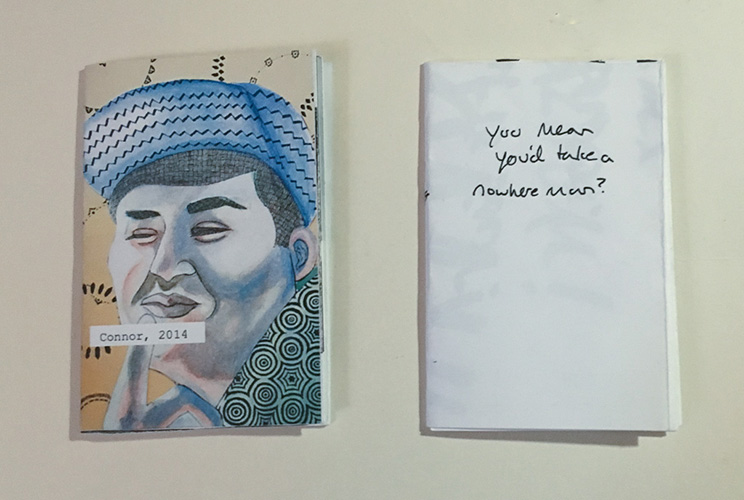 Connor, 2014
you mean
you'd take a
nowhere man?